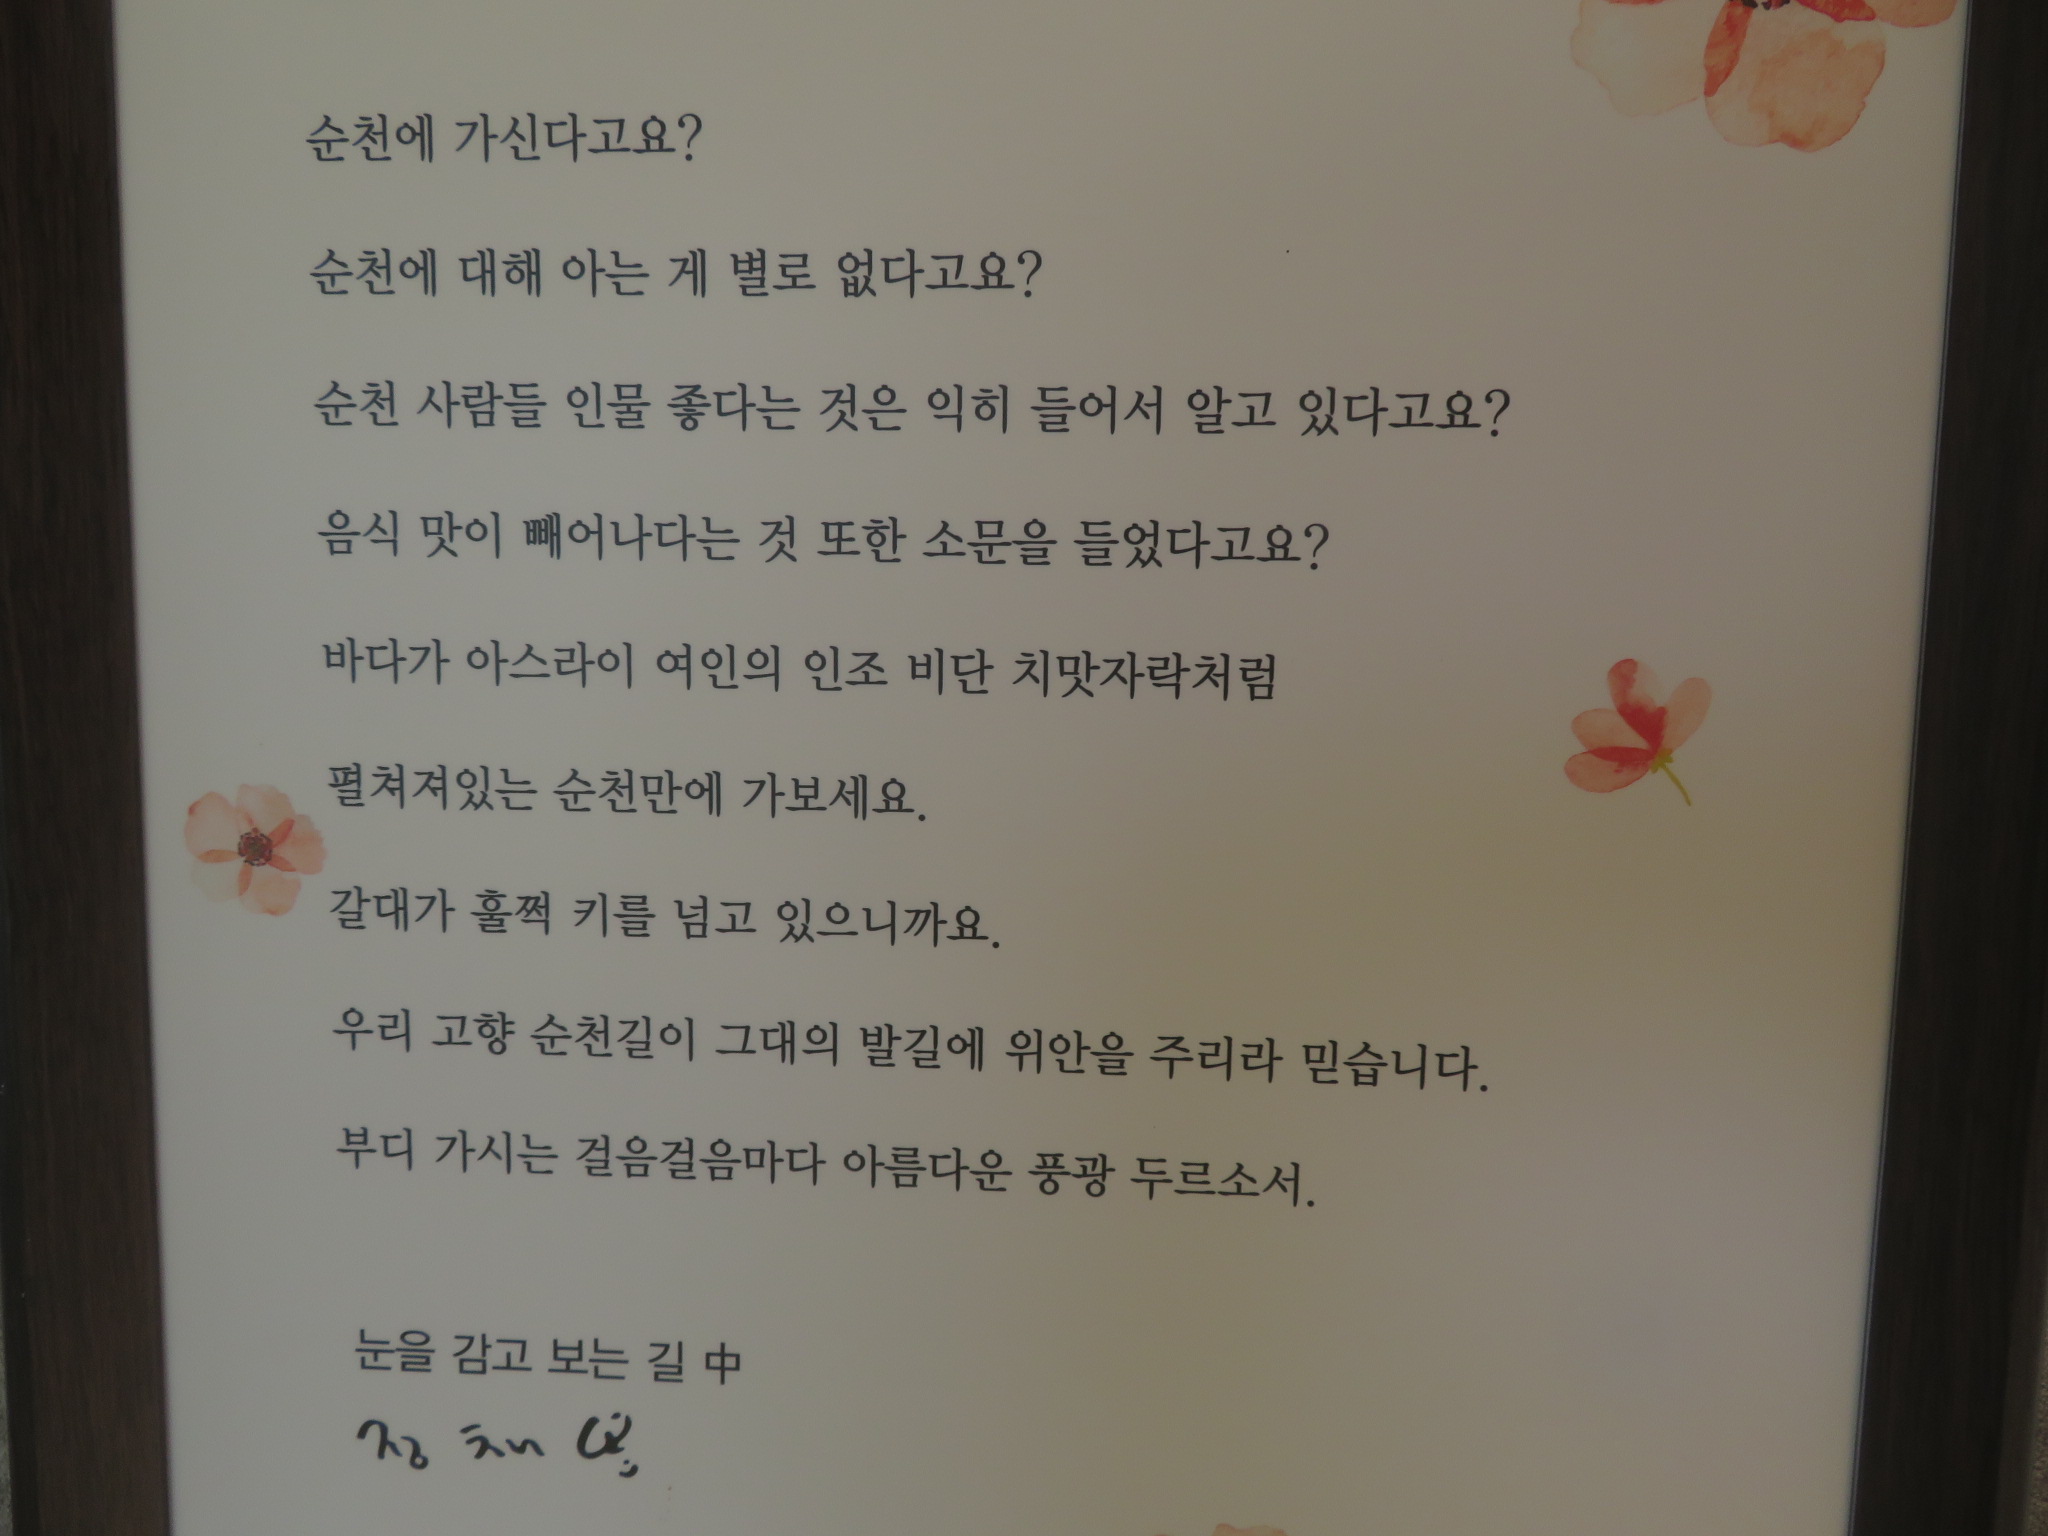 순천에 가신다고요?
순천에 대해 아는 게 별로 없다고요?
순천 사람들 인물 좋다는 것은 익히 들어서 알고 있다고요?
음식 맛이 빼어나다는 것 또한 소문을 들었다고요?
바다가 아스라이 여인의 인조 비단 치맛자락처럼
펼쳐져있는 순천만에 가보세요.
갈대가 훌쩍 키를 넘고 있으니까요.
우리 고향 순천길이 그대의 발길에 위안을 주리라 믿습니다.
부디 가시는 걸음걸음마다 아름다운 풍광 두르소서.
눈을 감고 보는 길 中
정채봉